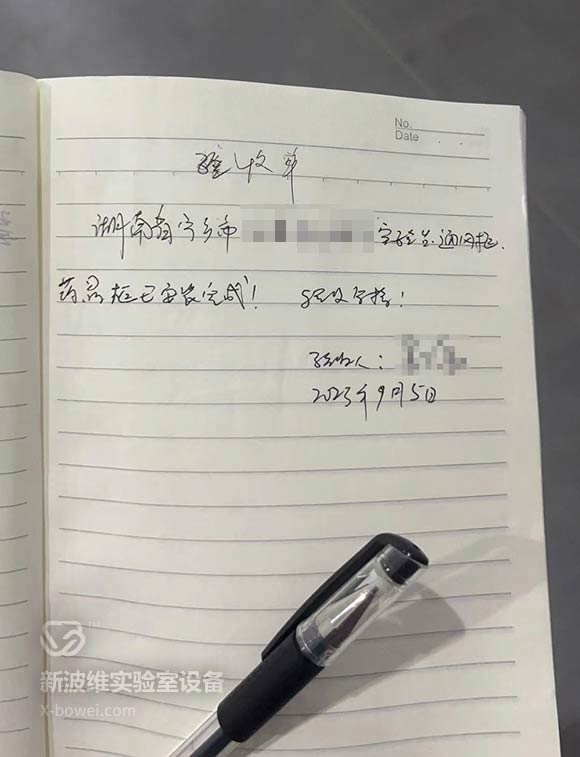 No.
Date
验收单
湖南省宁乡市 实验室通风柜.
药品柜已安装完成! 验收合格!
验收人:
2023年9月5日
新波维实验室设备
X-bowei.com